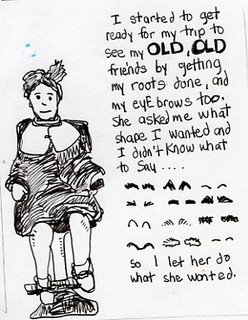 I started to get
ready for my trip to
see my OLD, OLD
friends by getting
my roots done, and
my eye brows too.
She asked me what
shape I wanted and
I didn't know what
to say ....
so I let her do
what she wanted.